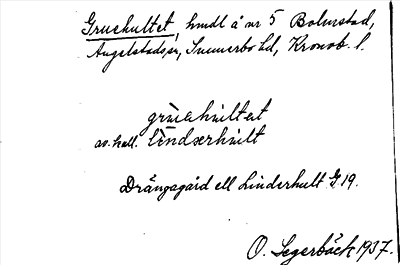 Gruehultet, hmdl å nr 5 Bolmstad,
Angelstads sn, Sunnerbo hd, Kronob. l.
grùehùltət
av. hall. lìndərhùlt
Drängagård ell Linderhult G 19.
O. Segerbäck 1937.